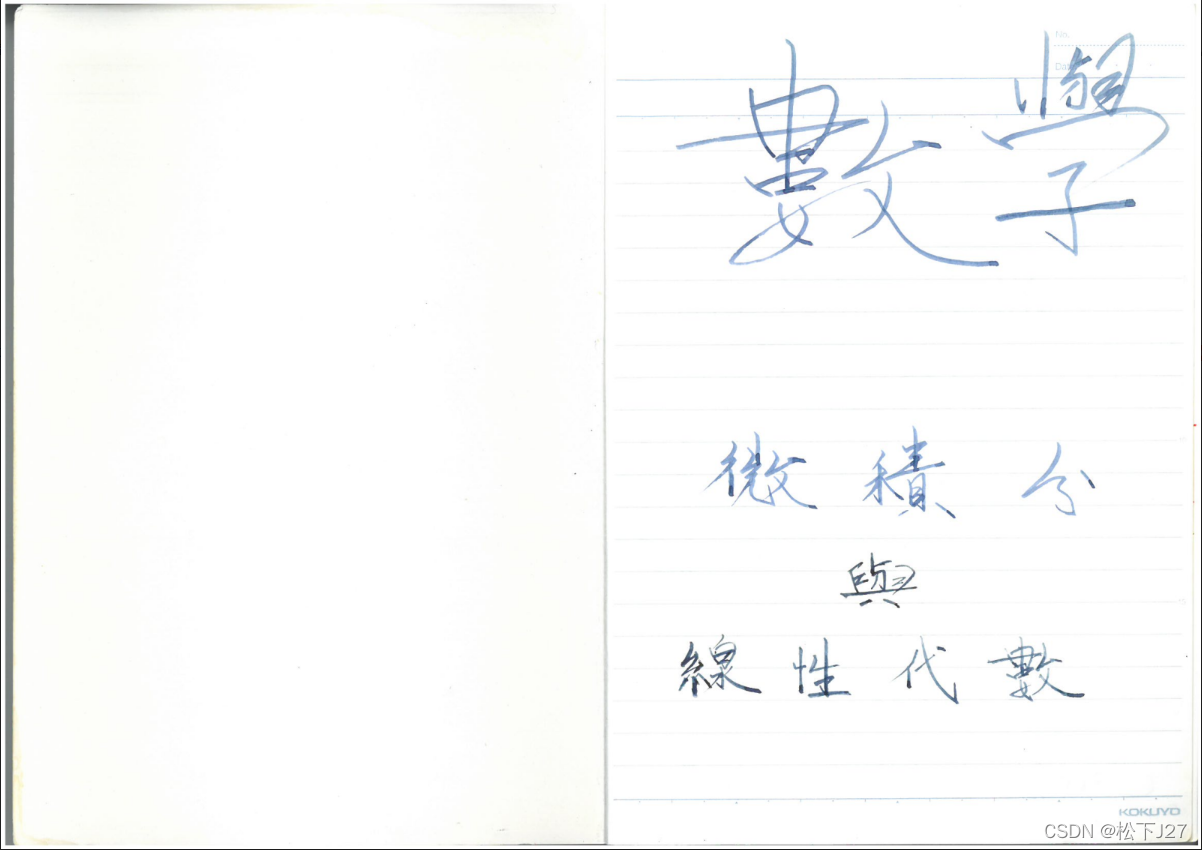 No.
Da
數學
微積分
與
線性代數
KOKUYO
CSDN @松下J27